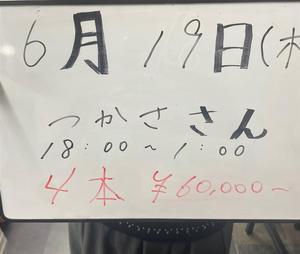 6月19日(木
つかささん
18:00~1:00
4本 ¥60,000~